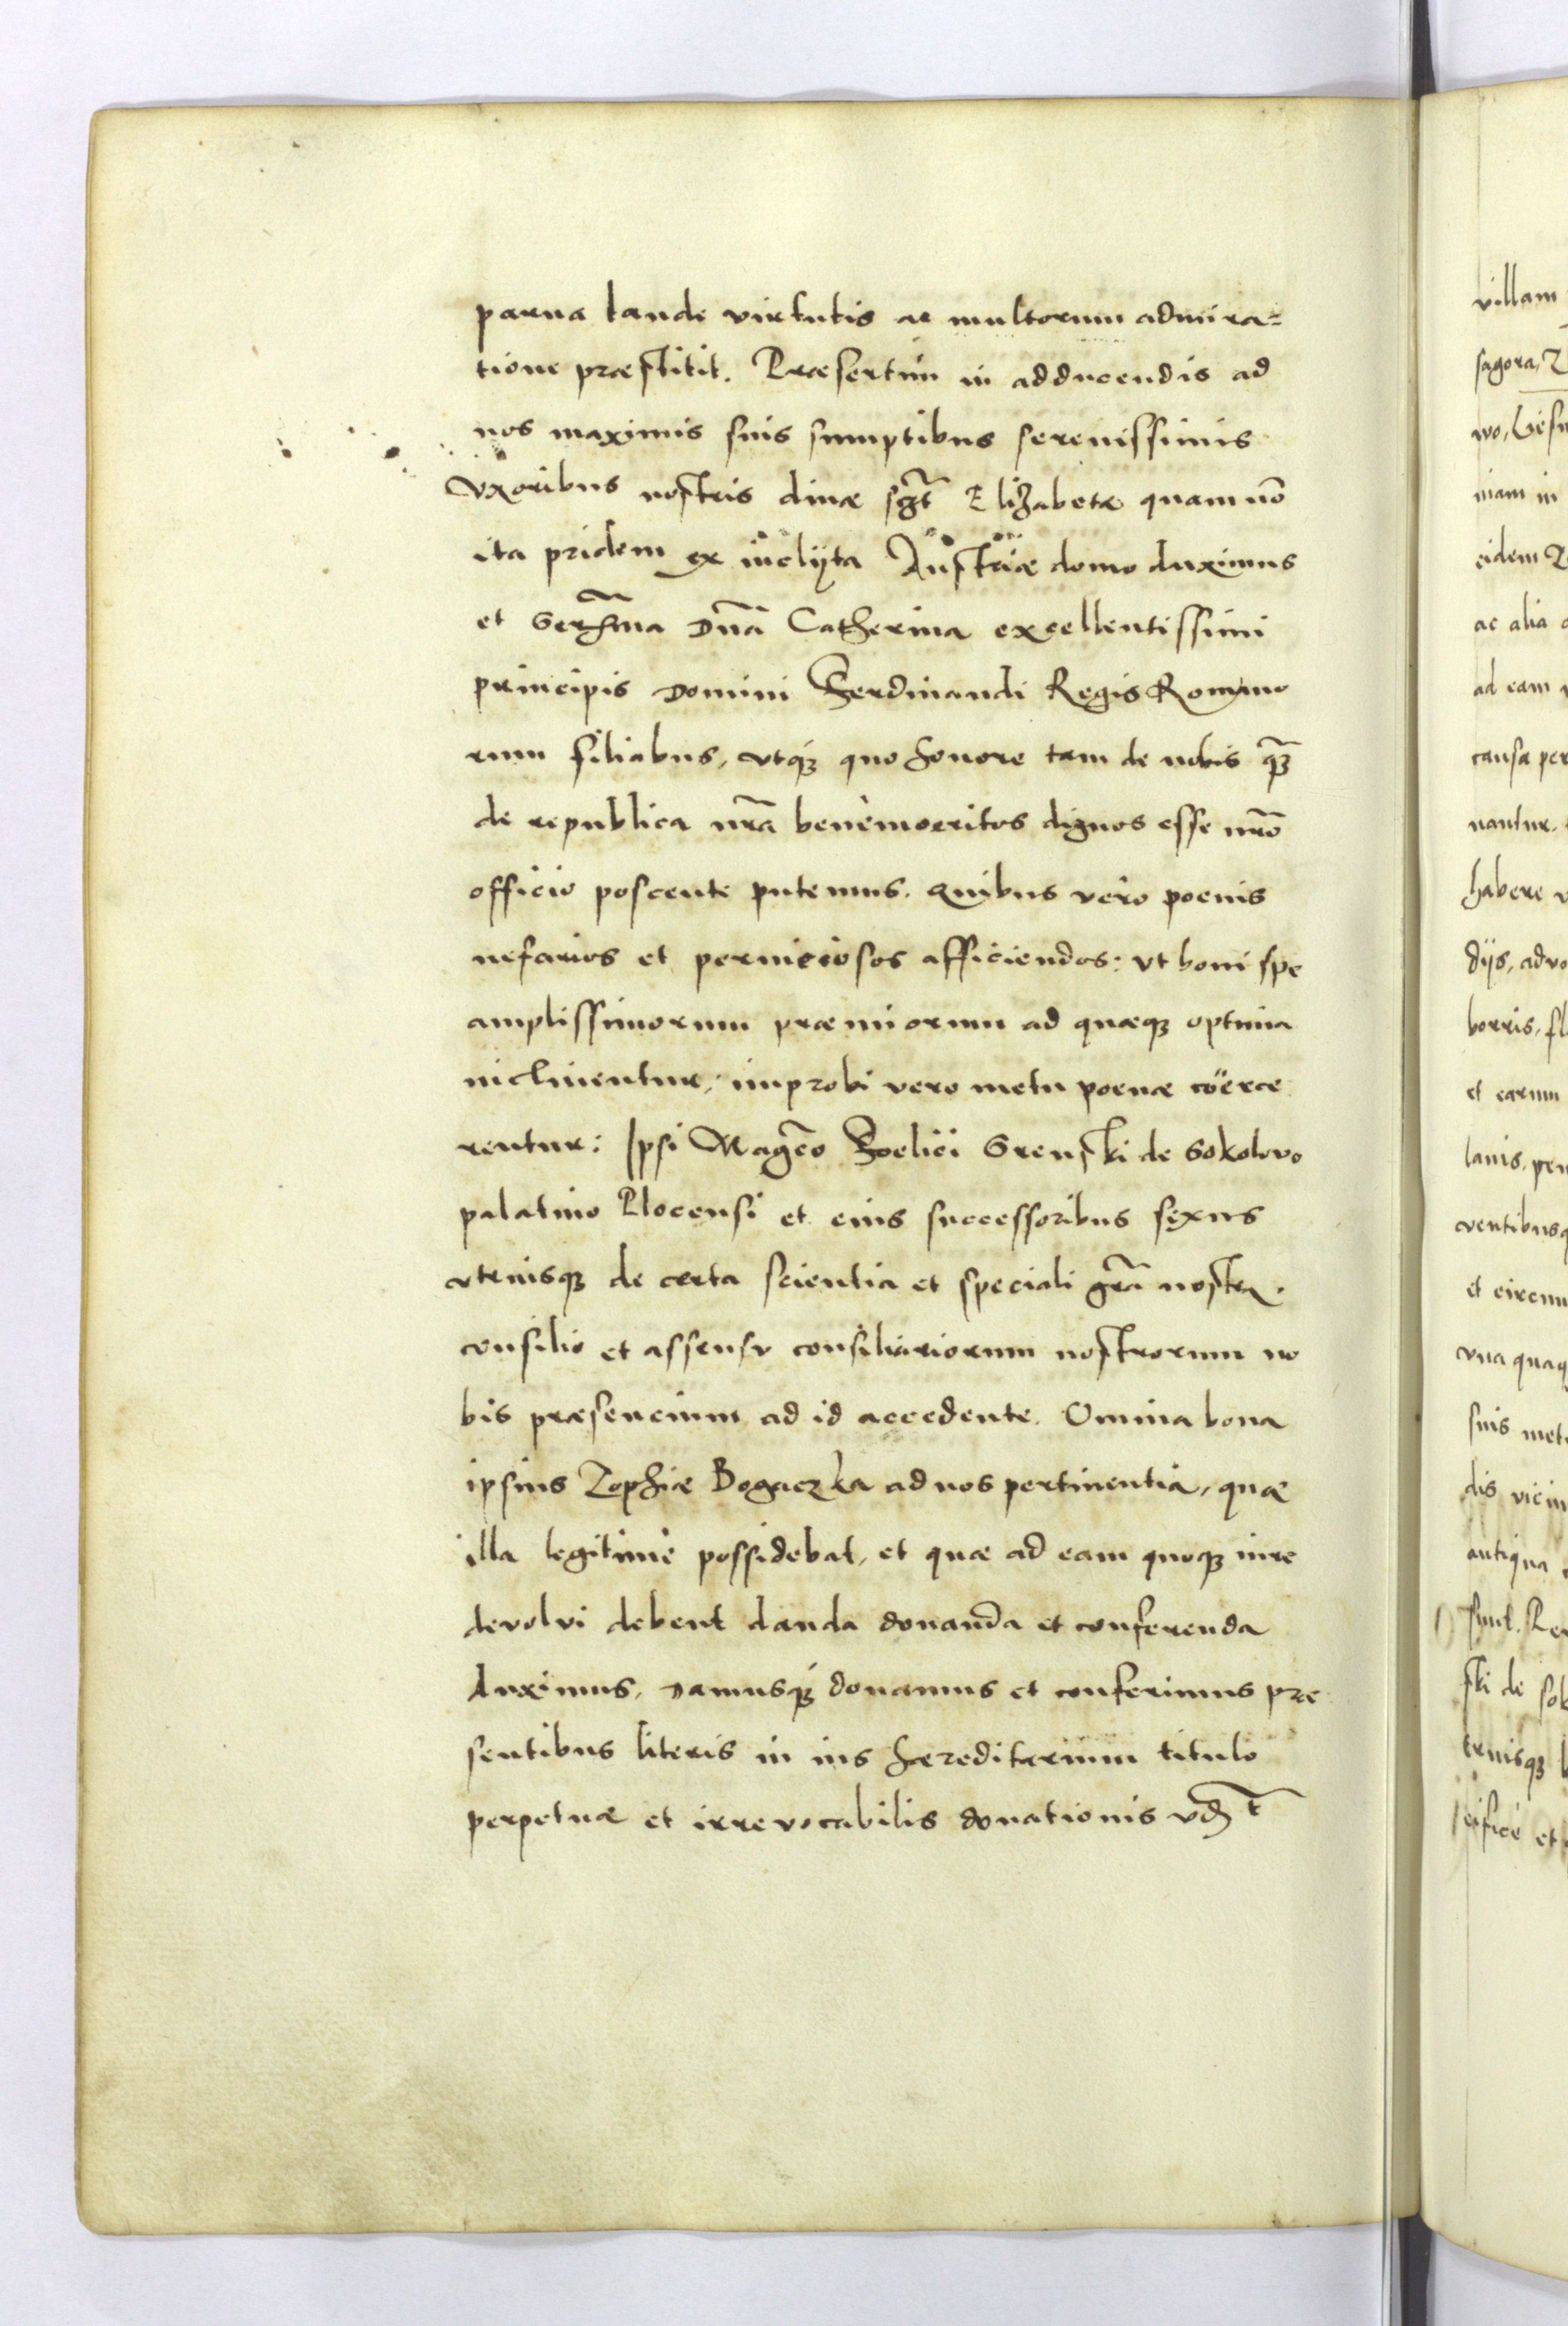 parua laude virtutis ac multorum admira=
tione præstitit. Præsertim in adducendis ad
nos maximis suis sumptibus serenissimis
Vxoribus nostris diuæ Elizabetæ quam nō
ita pridem ex inclyta Austriæ domo duximus
et Dnā Catherina excellentissimi
principis Domini Ferdinandi Regis Romano
rum filiabus, vtq́ȝ quo honore tam de nobis q̃ȝ
de republica nrā benèmoeritos dignos esse nrō
officio poscente putemus. Quibus vero poenis
nefarios et perniciosos afficiendos: vt boni spe
amplissimorum præmiorum ad quæqȝ optima
inclinentur, improbi vero metu poenæ coërce
rentur: Ipsi Magco Foelici Srenski de Sokolovo
palatino Plocensi et eius successoribus sexus
vtriusqȝ de certa scientia et speciali grā nostra.
consilio et assensu consiliariorum nostrorum no
bis præsencium ad id accedente. Omnia bona
ipsius Zophiæ Bogaczka ad nos pertinentia, quæ
illa legitimè possidebat, et quæ ad eam quoqȝ iure
devolvi debent danda donanda et conferenda
duximus, Damusq́ȝ donamus et conferimus præ
sentibus literis in ius hæreditarium titulo
perpetuæ et irrevocabilis donationis
villam
sagora,
eidem
ac alia
ad eam
causa per
nantur.
habere
dijs,
borris,
et earum
lanis,
ventibusq
et circum
vna quaq
suis
dis vicin
antiqua
ski de sok